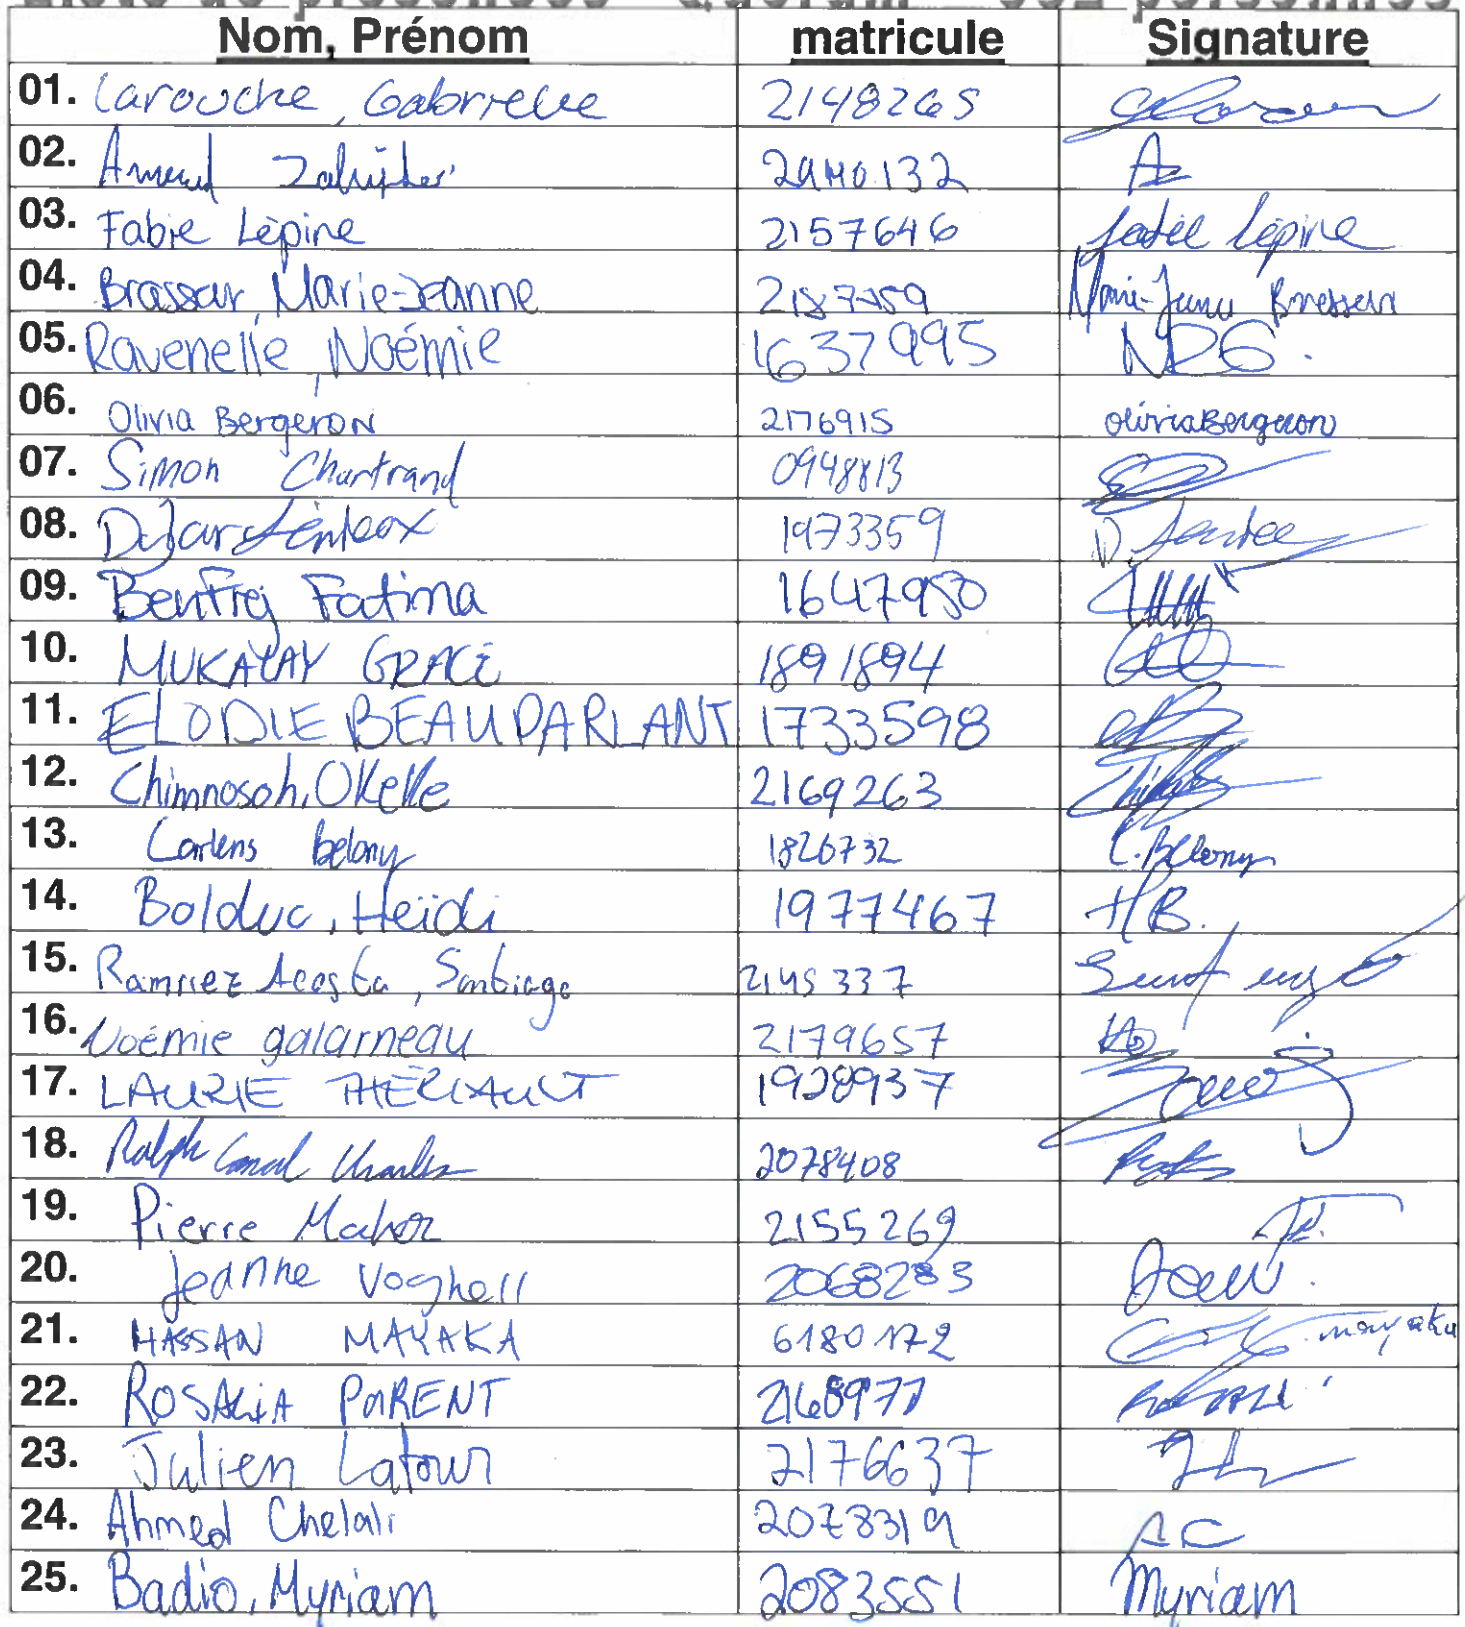 Nom, Prénom matricule Signature
01. Larouche, Gabrielle 2148265
02. 132
03. Fabie Lépine 2157646 Lépine
04. Brasseur, Marie-Jeanne Marie-Jeanne Brasseur
05. Ravenelle, Noémie 1637995
06. Olivia Bergeron 2176915 Olivia Bergeron
07. Simon Chartrand 0948813
08. 1973359
09. Benfrej Fatima 1647950
10. MUKALAY GRACE 1891894
11. ELODIE BEAUPARLANT 1733598
12. Chimnosoh, Okeke 2169263
13. Carlens belony 1826732 C. Belony
14. Bolduc, Heïdi 1977467 H B.
15. Ramirez Acosta, Santiago 2145337
16. Noémie galarneau 2179657
17. LAURIE THÉRIAULT 1928937
18. Ralph Charles 2078408
19. Pierre 2155269
20. Jeanne Voghell 2068283
21. HASSAN MAYAKA 6180172 mayaka
22. ROSALIA PARENT 2168977
23. Julien Latour 2176637
24. Ahmed Chelali 2078319 AC
25. Badio, Myriam 2083551 Myriam